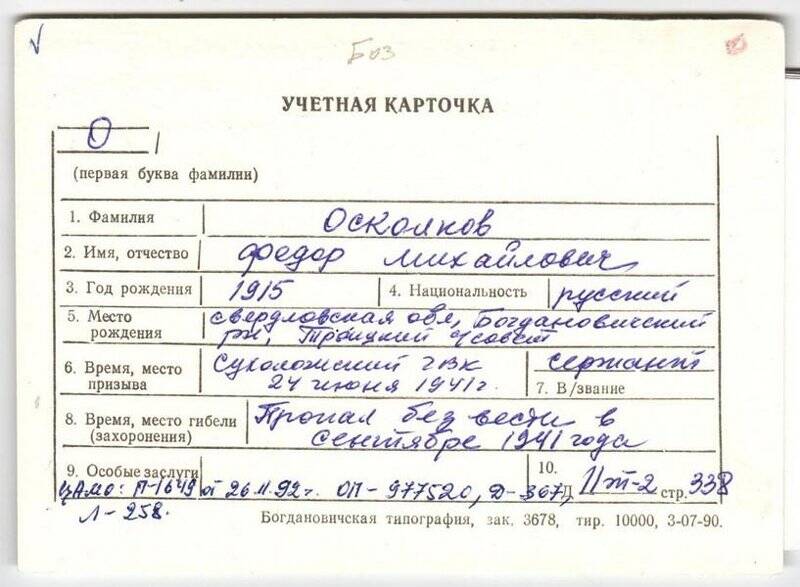 Боз
УЧЕТНАЯ КАРТОЧКА
О
(первая буква фамилии)
1. Фамилия Осколков
2. Имя, отчество Федор Михайлович
3. Год рождения 1915 4. Национальность русский
5. Место рождения Свердловская обл, Богдановичский
рн, Троицкий
6. Время, место призыва Сухоложский ГВК сержант
24 июня 1941 г. 7. В/звание
8. Время, место гибели (захоронения) Пропал без вести в
сентябре 1941 года
9. Особые заслуги 10.
ЦАМО: П-1649 от 26.11.92 г. ОП-977520, Д-367, Д IIт-2 стр. 338
Л-258.
Богдановичская типография, зак. 3678, тир. 10000, 3-07-90.